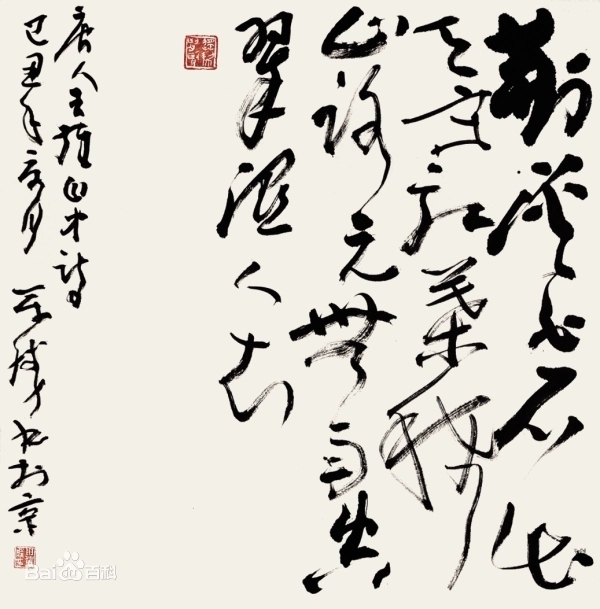 荆溪白石出
天寒红葉稀
山路元無雨空
翠湿人衣
唐人王维山中诗
己丑年 月 书于京
Bai百科